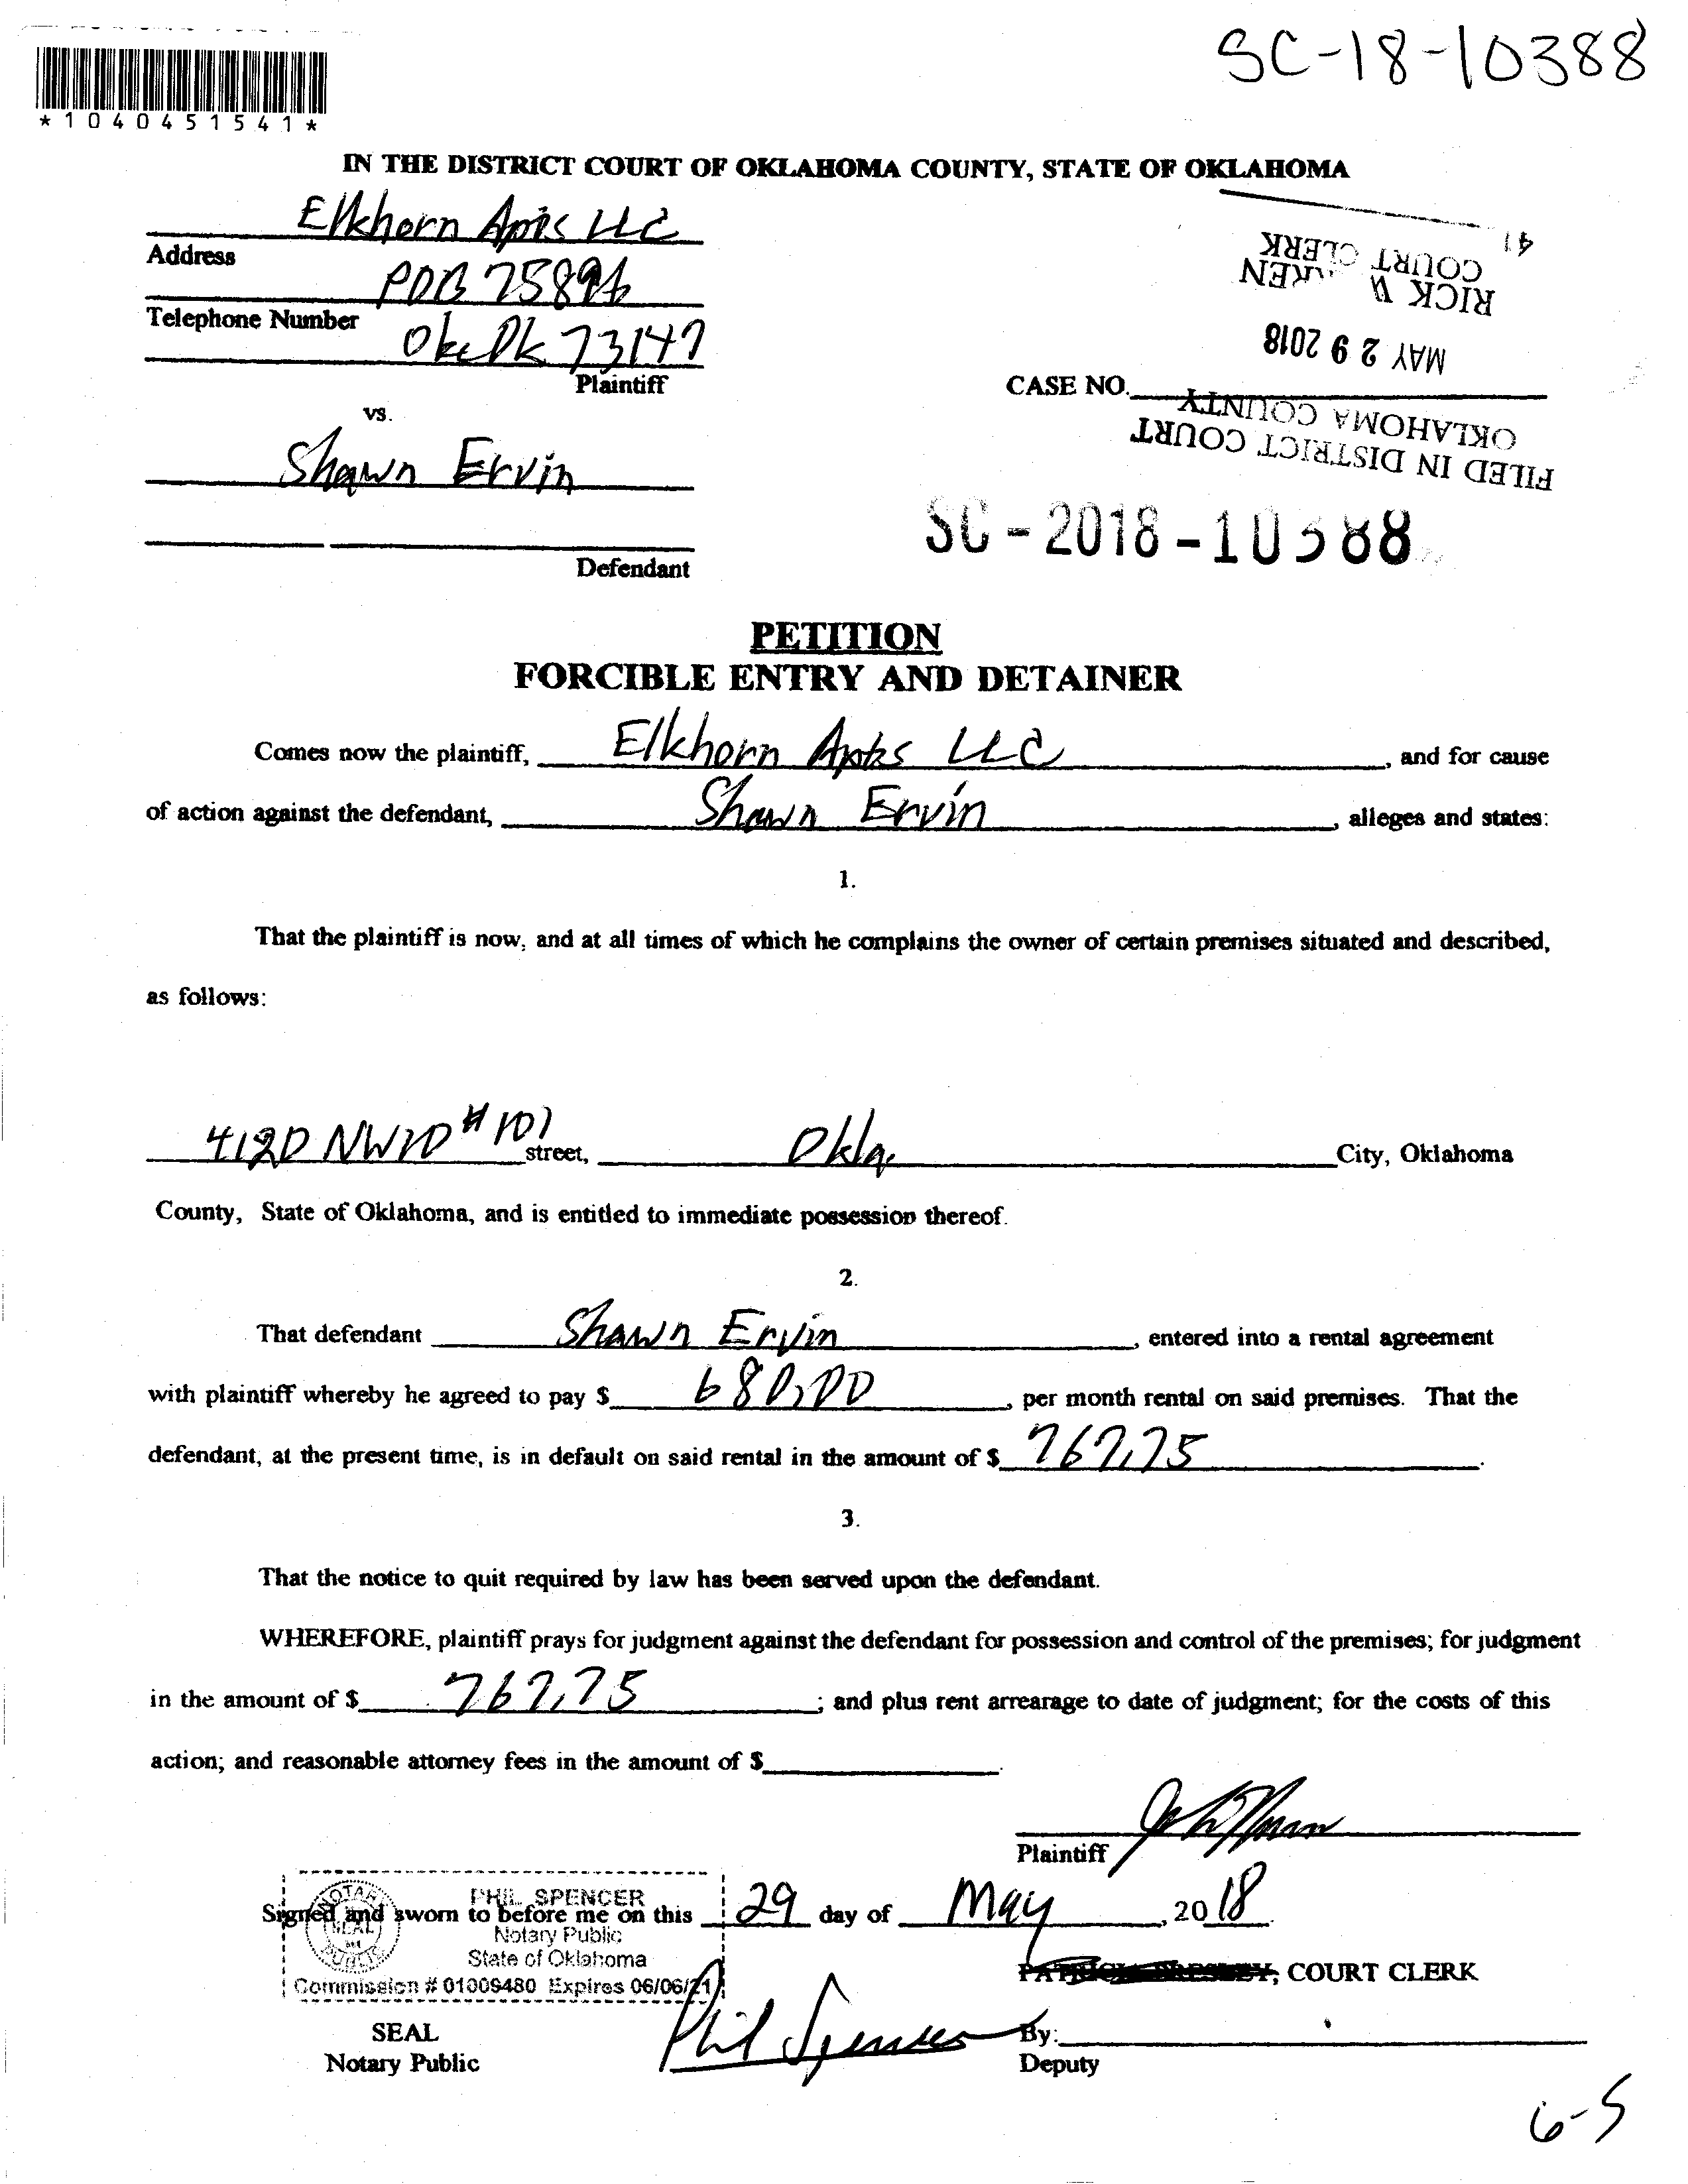 SC-18-10388
*1040451541*
IN THE DISTRICT COURT OF OKLAHOMA COUNTY, STATE OF OKLAHOMA
Elkhorn Apts LLC
Address
POB 75896
Telephone Number
Okc Ok 73147
Plaintiff
vs.
Shawn Ervin
Defendant
FILED IN DISTRICT COURT
OKLAHOMA COUNTY
MAY 29 2018
RICK
COURT CLERK
41
CASE NO.
SC-2018-10388
PETITION
FORCIBLE ENTRY AND DETAINER
Comes now the plaintiff, Elkhorn Apts LLC, and for cause
of action against the defendant, Shawn Ervin, alleges and states:
1.
That the plaintiff is now, and at all times of which he complains the owner of certain premises situated and described,
as follows:
4120 NW10 #101 street, Okla. City, Oklahoma
County, State of Oklahoma, and is entitled to immediate possession thereof.
2.
That defendant Shawn Ervin, entered into a rental agreement
with plaintiff whereby he agreed to pay $ 680.00, per month rental on said premises. That the
defendant, at the present time, is in default on said rental in the amount of $ 767.75.
3.
That the notice to quit required by law has been served upon the defendant.
WHEREFORE, plaintiff prays for judgment against the defendant for possession and control of the premises; for judgment
in the amount of $ 767.75; and plus rent arrearage to date of judgment; for the costs of this
action; and reasonable attorney fees in the amount of $
Plaintiff
Signed and sworn to before me on this 29 day of May, 2018.
NOTARY SEAL PUBLIC
PHIL SPENCER
Notary Public
State of Oklahoma
Commission # 01009480 Expires 06/06/21
COURT CLERK
SEAL
Notary Public
Phil Spencer
By:
Deputy
6-5